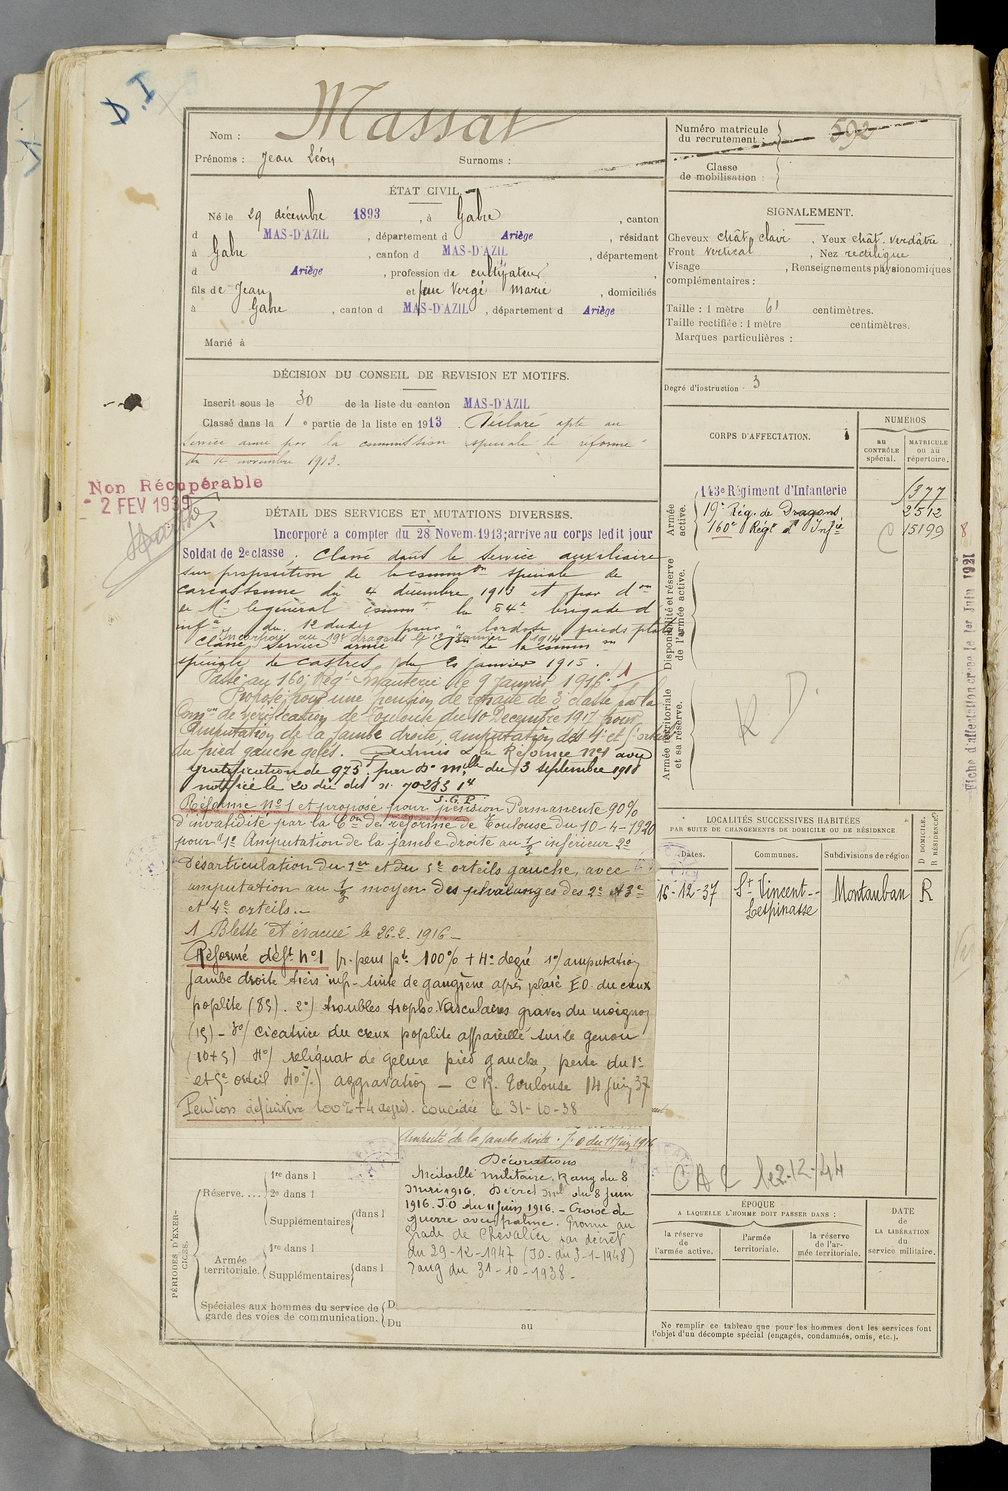 D.I
Nom : Massat
Prénoms : Jean Léon Surnoms :
ÉTAT CIVIL.
Né le 29 décembre 1893, à Gabre, canton
d MAS-D'AZIL, département d Ariège, résidant
à Gabre, canton d MAS-D'AZIL, département
d Ariège, profession de cultivateur
fils de Jean et feu Vergé Marie, domiciliés
à Gabre, canton d MAS-D'AZIL, département d Ariège
Marié à
DÉCISION DU CONSEIL DE REVISION ET MOTIFS.
Inscrit sous le n° 30 de la liste du canton MAS-D'AZIL
Classé dans la 1e partie de la liste en 1913. Déclaré apte au
service armé par la commission spéciale de réforme
du novembre 1913.
Non Récupérable
- 2 FEV 1939
DÉTAIL DES SERVICES ET MUTATIONS DIVERSES.
Incorporé à compter du 28 Novem. 1913; arrivé au corps ledit jour
Soldat de 2e classe. Classé dans le Service auxiliaire
sur proposition de la common spéciale de
carcassonne du 4 décembre 1913 et par don
de Mr le général commt la 64e brigade d'
infie du 12 dudit pour "lordose pieds plats"
Incorporé au 19e dragons le janvier 1914
Classé service armé don de la common
spéciale de castres du 20 janvier 1915.
Passé au 160e Régt Infanterie le 9 Janvier 1916. 1
Proposé pour une pension de retraite de 3e classe par la
Comon de vérification de Toulouse du 10 Décembre 1917 pour
Amputation de la jambe droite, amputation des 4e et 5e orteils
du pied gauche gelés. Admis à la Réforme no 1 avec
gratification de 975f par Don Mille du 13 septembre 1918
notifiée le 20 du dit n° 70285
J.G.P.
Réforme No 1 et proposé pour pension Permanente 90%
d'invalidité par la Con de réforme de Toulouse du 10-4-1920
pour "1° Amputation de la jambe droite au 1/3 inférieur 2°
Désarticulation du 1er et du 5e orteils gauche, avec
amputation au 1/3 moyen des phalanges des 2e et 3e
et 4e orteils.-
1 Blessé et évacué le 26.2.1916 -
Réformé déft No 1 pr. pens pte 100% + 4e degré 1°/ amputation
jambe droite tiers infr suite de gangrène après plaie E.O. du creux
poplité (85). 2°/ troubles tropho-vasculaires graves du moignon
(15) - 3°/ cicatrice du creux poplité appareillé sur le genou
(10+5) 4°/ reliquat de gelure pied gauche, perte du 1er
et 5e orteil 40%) aggravation - C R. Toulouse 14 Juin 37
Pension définitive 100% + 4 degrés. concédée le 31-10-38
Amputé de la jambe droite. J.O du 11 Juin 1916
Décorations
Médaille militaire, Rang du 8
mars 1916. Décret Mel du 8 Juin
1916. J.O du 11 Juin 1916. - Croix de
guerre avec palme. Promu au
grade de Chevalier par décret
du 29-12-1947 (J.O. du 3-1-1948)
Rang du 31-10-1938.-
PÉRIODES D'EXERCICES.
Réserve....
1re dans l
2e dans l
Supplémentaires dans l
Armée territoriale.
1re dans l
Supplémentaires dans l
Spéciales aux hommes du service de garde des voies de communication.
D
Du au
Numéro matricule du recrutement : 592
Classe de mobilisation :
SIGNALEMENT.
Cheveux chât. clair, Yeux chât. verdâtre,
Front vertical, Nez rectiligne,
Visage , Renseignements physionomiques
complémentaires :
Taille : 1 mètre 61 centimètres.
Taille rectifiée : 1 mètre centimètres.
Marques particulières :
Degré d'instruction : 3
CORPS D'AFFECTATION.
NUMÉROS
au CONTRÔLE spécial.
MATRICULE ou au répertoire.
Armée active.
143e Régiment d'Infanterie 1377
19e Rég. de Dragons 2512
160e Régt d'Infie C 15199
Disponibilité et réserve de l'armée active.
Armée territoriale et sa réserve.
R D.
Fiche d'affectation créée le 1er Juin 1921
8
LOCALITÉS SUCCESSIVES HABITÉES
PAR SUITE DE CHANGEMENTS DE DOMICILE OU DE RÉSIDENCE
Dates. Communes. Subdivisions de région D DOMICILE. R RÉSIDENCE
16-12-37 St Vincent-- Lespinasse Montauban R
CAR le 2-12-44
ÉPOQUE
A LAQUELLE L'HOMME DOIT PASSER DANS :
la réserve de l'armée active.
l'armée territoriale.
la réserve de l'armée territoriale.
DATE DE LA LIBÉRATION du service militaire.
Ne remplir ce tableau que pour les hommes dont les services font
l'objet d'un décompte spécial (engagés, condamnés, omis, etc.).